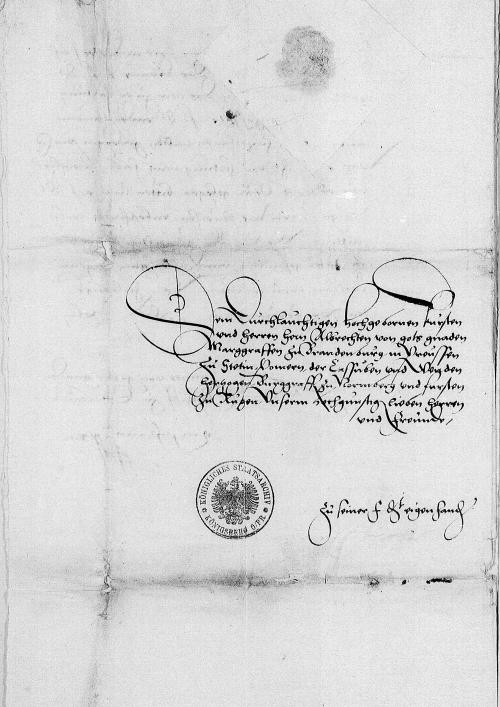 Dem Durchlauchtigen hochgebornen fursten
und herren hern Albrechten von gots gnaden
Marggraffen zu Brandenburg in Preussen
zu Stetin Pomern der Cassuben und Wenden
hertzogen Burggraff zu Normberg und fursten
zu Rugen unserm gunstig lieben herren
und freunde
KÖNIGLICHES STAATSARCHIV
KÖNIGSBERG O/PR.
Zu seiner f. eigen handt